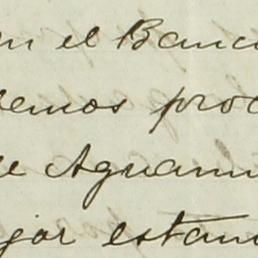 en el Banc
emos pro
e Aguann
jar estam